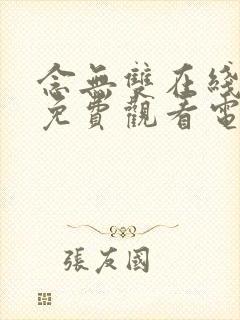 念無雙在綫
免費觀看電
張友國